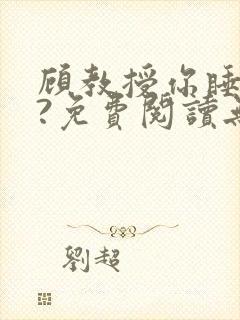 顧教授你睡
?免費閱讀
劉超